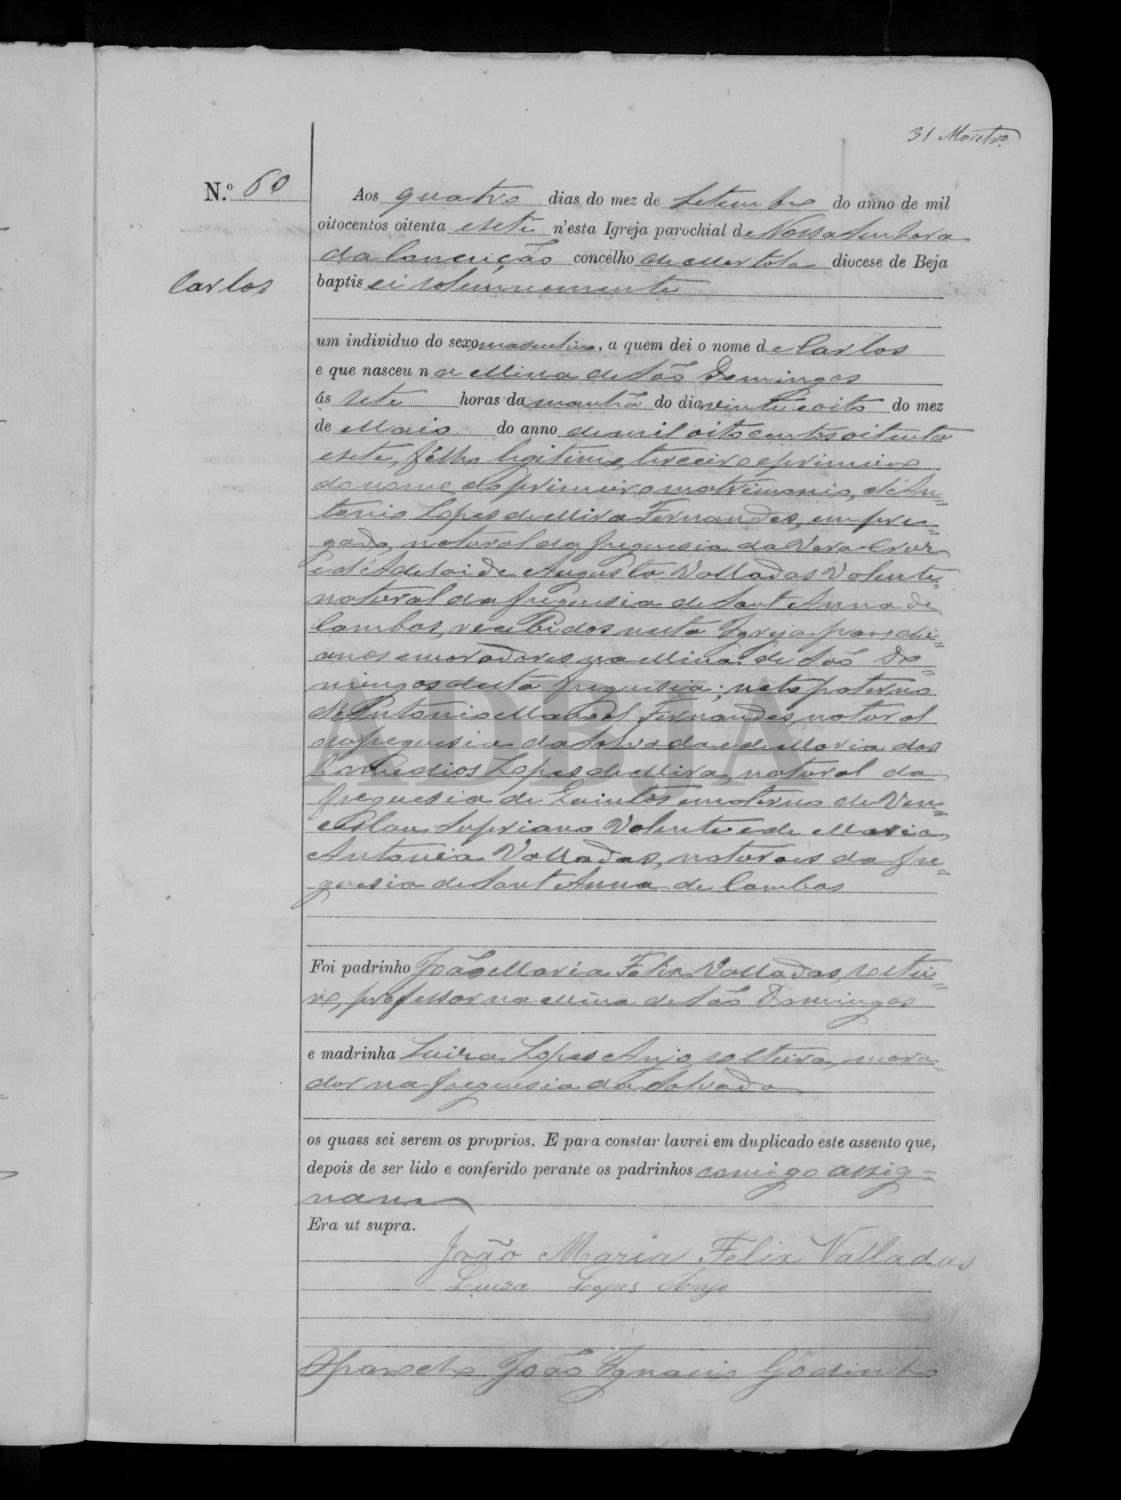 31
N.º 60
Aos quatro dias do mez de Setembro do anno de mil
oitocentos oitenta e sete n'esta Igreja parochial de Nossa Senhora
da Conceição concelho de Mertola diocese de Beja
Carlos
baptisei solemnemente
um individuo do sexo masculino, a quem dei o nome de Carlos
e que nasceu na Mina de São Domingos
ás sete horas da manhã do dia vinte e oito do mez
de Maio do anno de mil oito centos oitenta
e sete, filho legitimo, terceiro e primeiro
do nome e do primeiro matrimonio, d'An=
tonio Lopes de Mira Fernandes, empre=
gado, natural da freguesia da Vera Cruz
e d'Adelaide Augusta Valladas Valente,
natural da freguesia de Sant Anna de
Cambas, recebidos nesta Igreja, parochi=
anos e moradores na Mina de São Do=
mingos desta freguesia; neto paterno
de Antonio Manoel Fernandes, natural
da freguesia da Salvada e de Maria dos
Remedios Lopes de Mira, natural da
freguesia de Quintos e materno de Ven=
ceslau Valente e de Maria
Antonia Valladas, naturaes da fre=
guesia de Sant Anna de Cambas
ADBJA
Foi padrinho João Maria Felix Valladas, soltei=
ro, professor na Mina de São Domingos
e madrinha Luiza Lopes Anjo, solteira, mora=
dor na freguesia da Salvada
os quaes sei serem os proprios. E para constar lavrei em duplicado este assento que,
depois de ser lido e conferido perante os padrinhos comigo assig=
nam
Era ut supra.
João Maria Felix Valladas
Luiza Lopes Anjo
O parocho João Ignacio Godinho